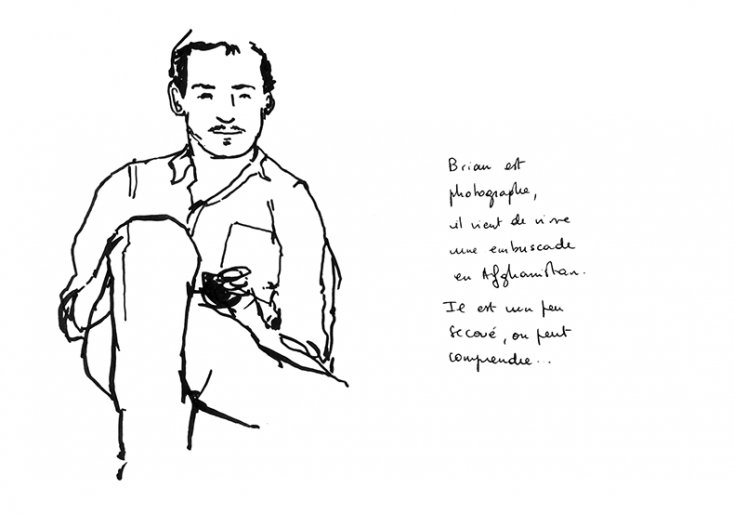 Brian est
photographe,
il vient de vivre
une embuscade
en Afghanistan.
Il est un peu
secoué, on peut
comprendre...